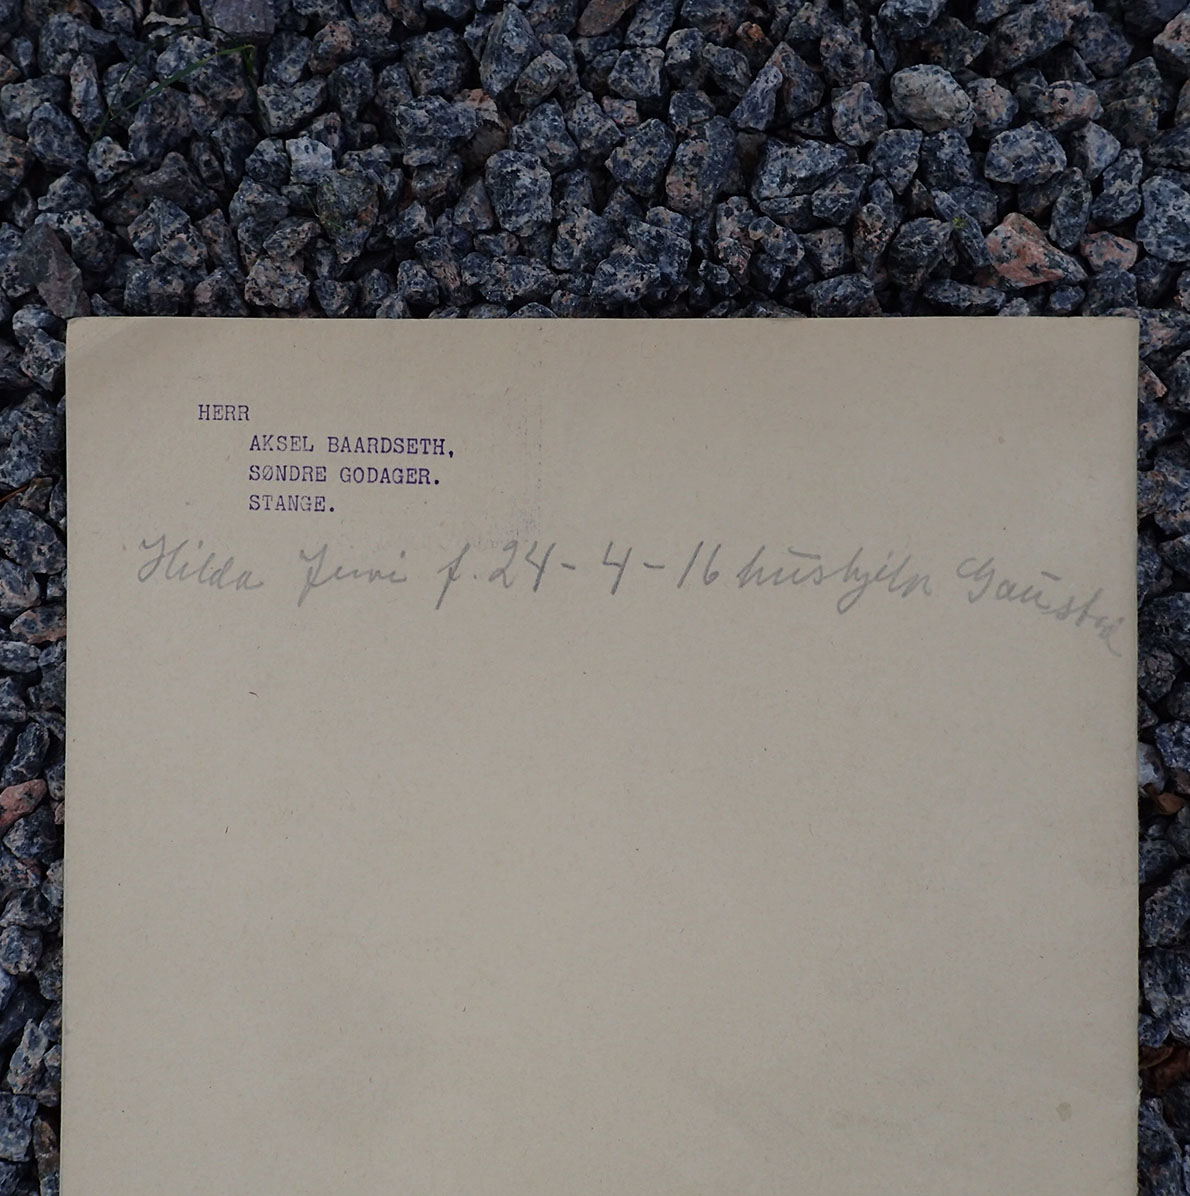 HERR
AKSEL BAARDSETH,
SØNDRE GODAGER.
STANGE.
Hilda f. 24-4-16 hushjelp Gaustad